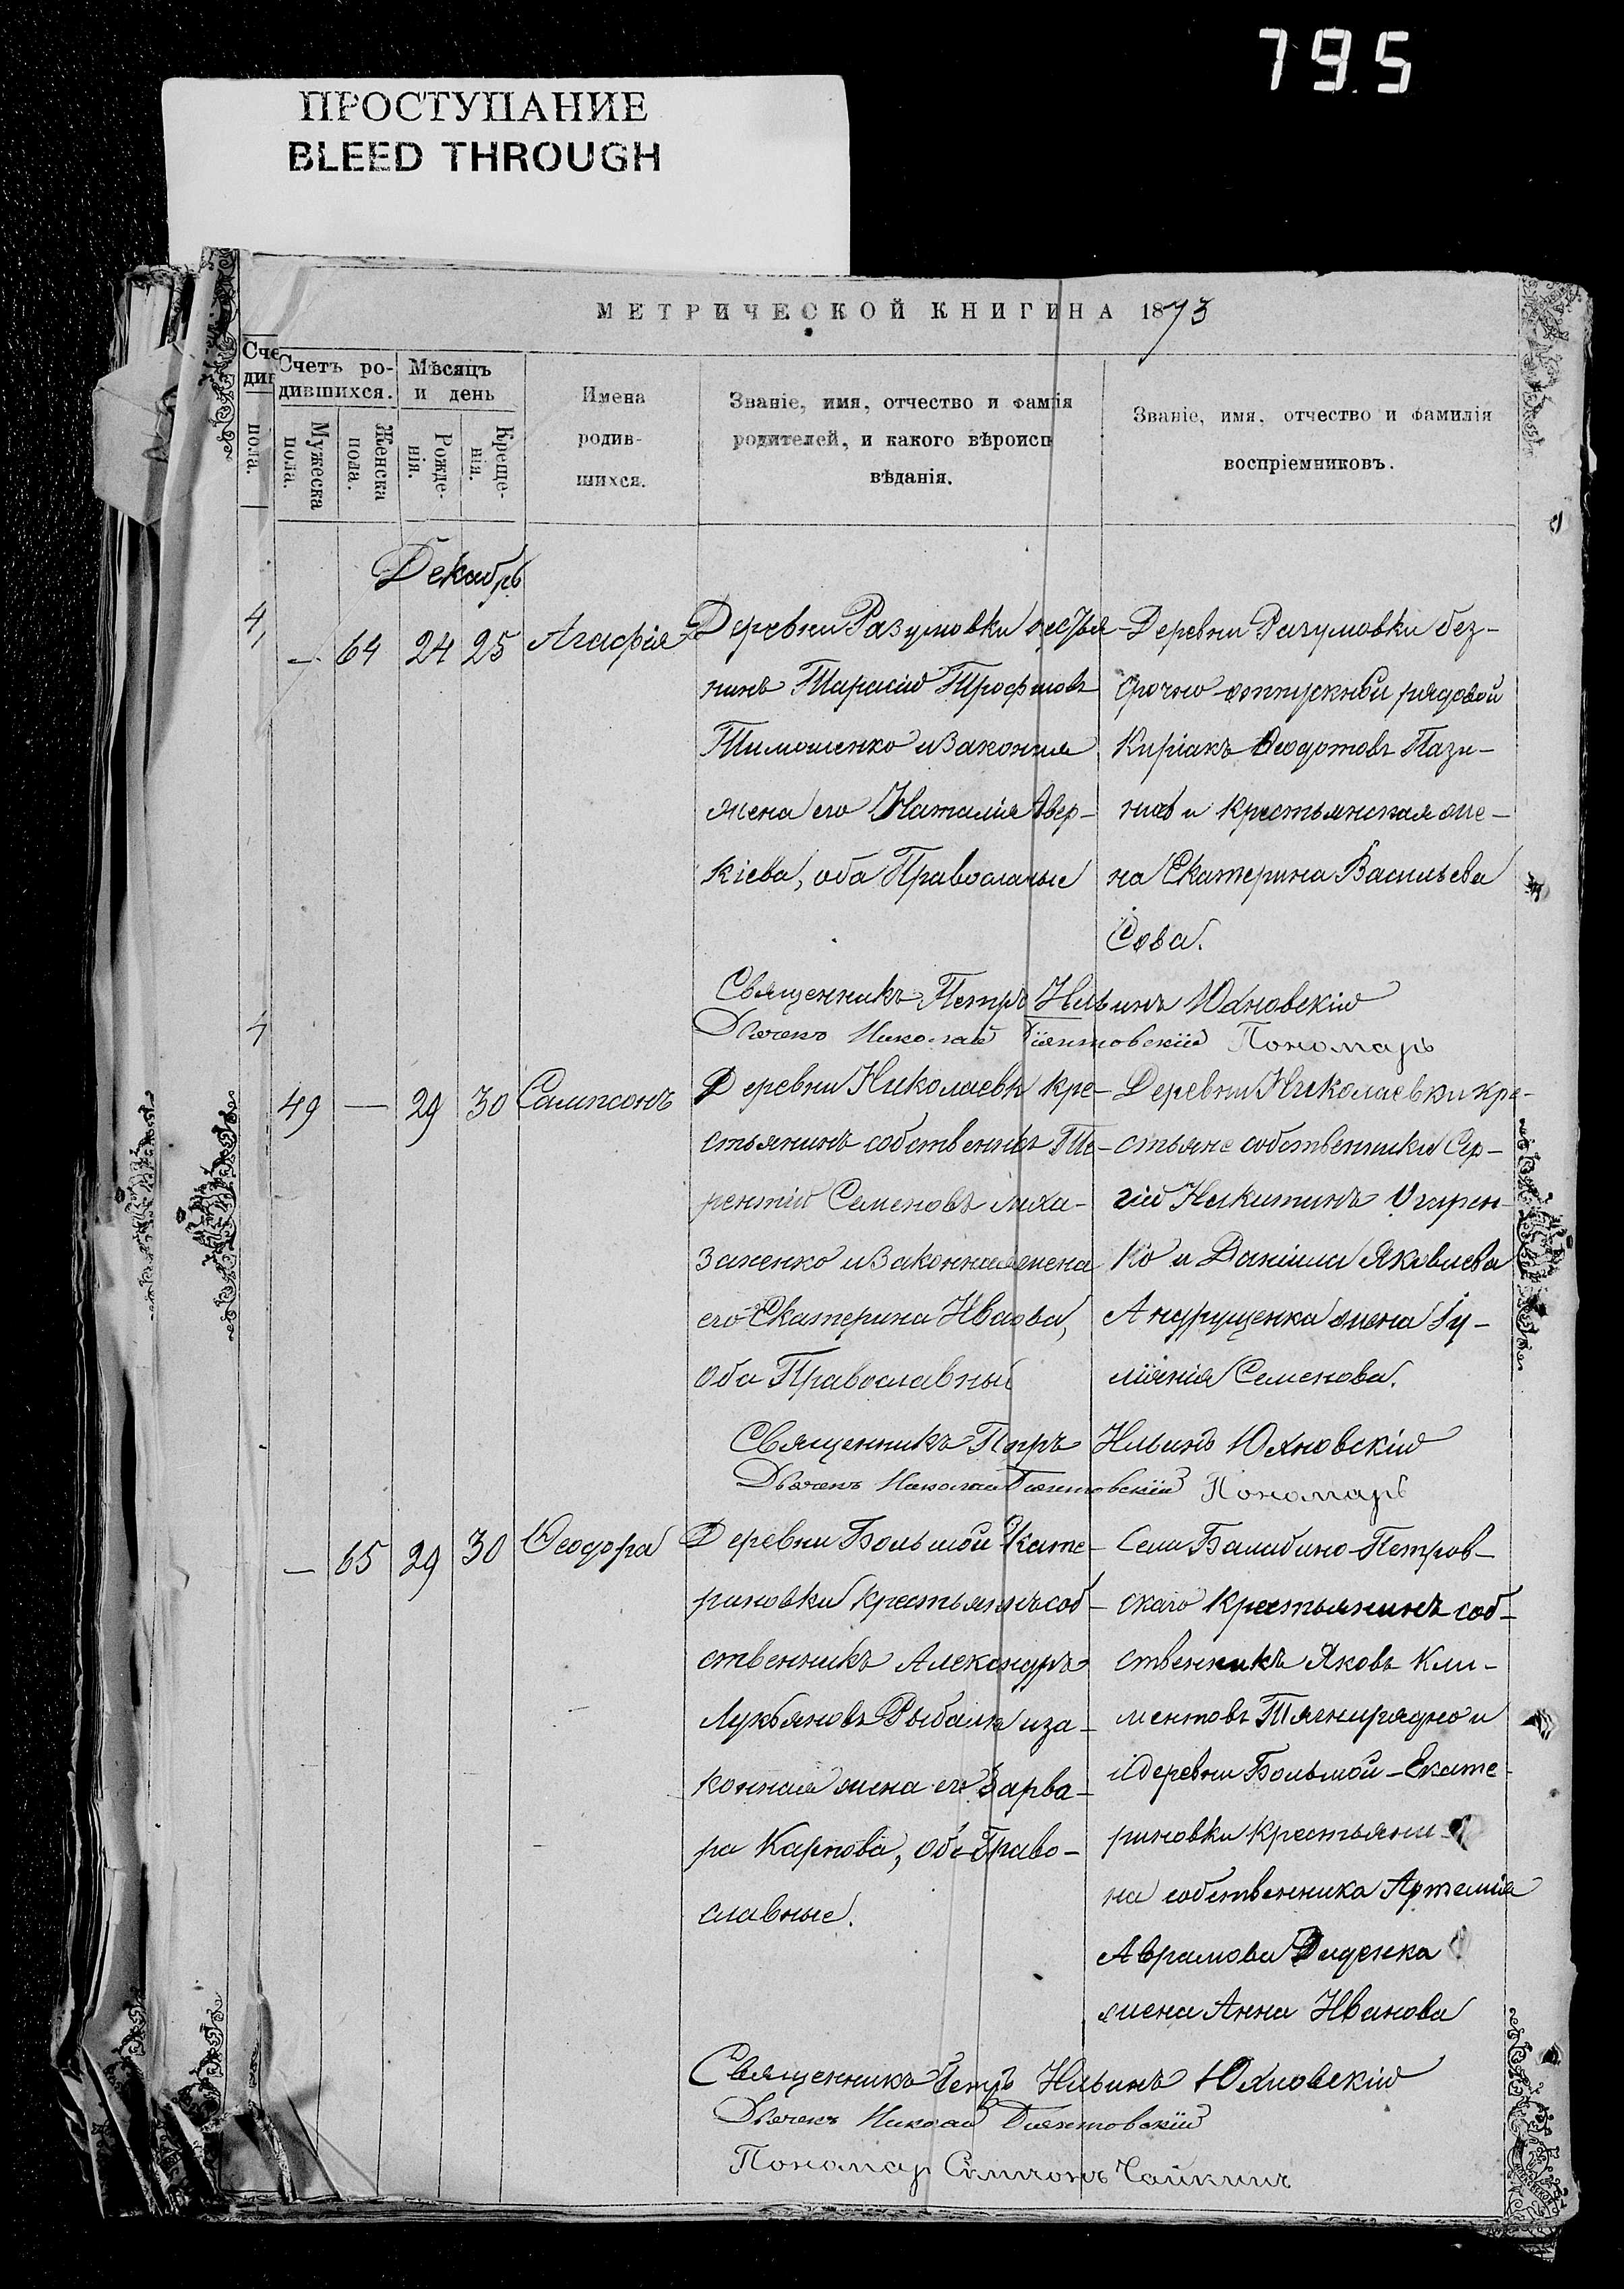 795
ПРОСТУПАНИЕ
BLEED THROUGH
МЕТРИЧЕСКОЙ КНИГИ НА 1873
Сче
див
пола.
Счетъ ро-
дившихся.
Мѣсяцъ
и день
Мужеска
пола.
Женска
пола.
Рожде-
нія.
Креще-
нія.
Имена
родив-
шихся.
Званіе, имя, отчество и фамілія
родителей, и какого вѣроисп
вѣданія.
Званіе, имя, отчество и фамилія
воспріемниковъ.
Декабрь
— 64 24 25 Агафія
Деревни Разумовки
нинъ Тарасій Трофимовъ
Тимошенко и законная
жена его Наталія Авер-
кіева, оба Православные
Деревни Разумовки без-
срочно-отпускной рядовой
Киріакъ Ѳеодотовъ
и крестьянская же-
на Екатерина Васильева
Сова.
Священникъ Петръ Ильинъ Юхновскій
Дьячекъ Николай Пономарь
49 — 29 30 Сампсонъ
Деревни Николаевки кре-
стьянинъ собственникъ Те-
рентій Семеновъ
и законная жена
его Екатерина Иванова,
оба Православный
Деревни Николаевки кре-
стьяне собственники Сер-
гій Никитинъ
ко и Даніила Яковлева
Андрущенка жена Іу-
ліянія Семенова.
Священникъ Петръ Ильинъ Юхновскій
Дьячекъ Николай Пономарь
— 65 29 30 Ѳеодора
Деревни Большой Екате-
риновки крестьянинъ соб-
ственникъ Александръ
Лукьяновъ Рыбалка и за-
конная жена его Варва-
ра Карпова, оба Право-
славные.
Села Балабино-Петров-
скаго крестьянинъ соб-
ственникъ Яковъ Кли-
ментовъ Тягнирядно и
деревни Большой-Екате-
риновки крестьяни-
на собственника Артемія
Аврамова Диденка
жена Анна Иванова
Священникъ Петръ Ильинъ Юхновскій
Дьячекъ Николай
Пономар Чайкинъ